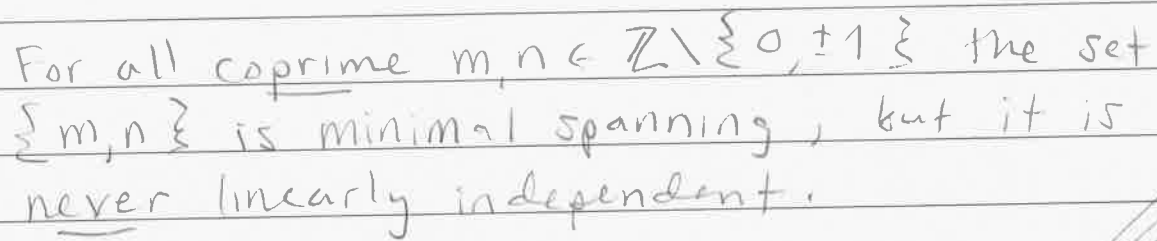 For all coprime m,n ∈ ℤ\{0,±1} the set
{m,n} is minimal spanning, but it is
never linearly independent.